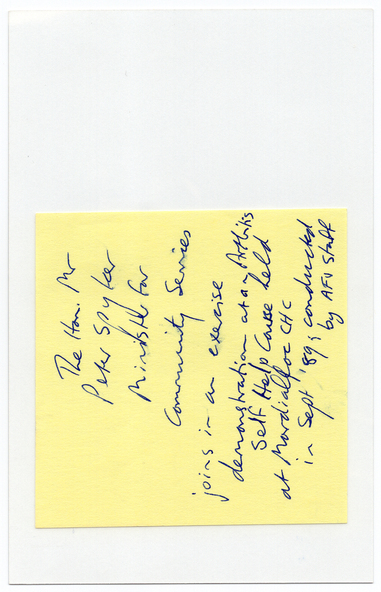 The Hon. Mr
Peter Spyker
Minister for
Community Services
joins in an exercise
demonstration at an Arthritis
Self Help Course held
at Mordialloc CHC
in Sept '89 conducted
by AFV staff